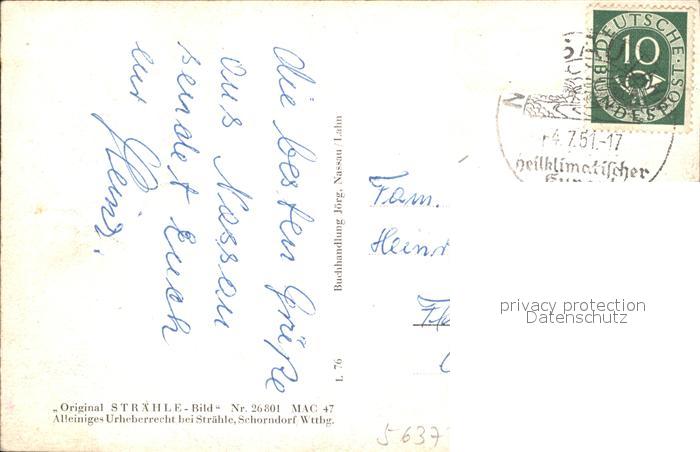 die besten Grüße
aus Nassau
sendet Euch
eur Heinz.
Buchhandlung Jörg, Nassau/Lahn
L 76
„Original STRÄHLE-Bild“ Nr. 26801 MAC 47
Alleiniges Urheberrecht bei Strähle, Schorndorf Wttbg.
DEUTSCHE
BUNDESPOST
10
4.7.51.-17
heilklimatischer
Fam.
Heinr
privacy protection
Datenschutz
5637